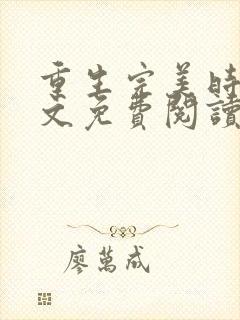 重生完美時
文免費閱讀
廖萬成